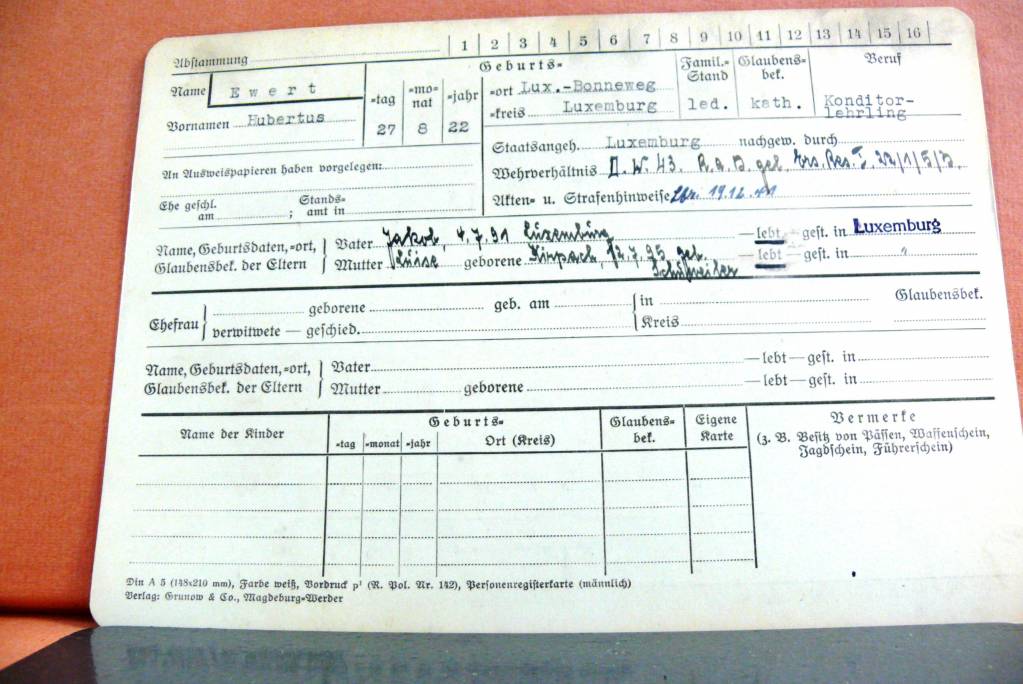 Abstammung 1 2 3 4 5 6 7 8 9 10 11 12 13 14 15 16
Name Ewert
Vornamen Hubertus
An Ausweispapieren haben vorgelegen:
Ehe geschl. am ; Stands= amt in
Geburts=
=tag =mo= nat =jahr =ort Lux.-Bonneweg
27 8 22 =kreis Luxemburg
Famil.= Stand
led.
Glaubens= bek.
kath.
Beruf
Konditor-
lehrling
Staatsangeh. Luxemburg nachgew. durch
Wehrverhältnis II. W. 43. R.a.D. gel. Ers. Res. I. 22/1/5/3.
Akten= u. Strafenhinweise 19.12.41
Name, Geburtsdaten, =ort,
Glaubensbek. der Eltern
Vater Jakob, 4.7.91 Luxemburg —lebt— gest. in Luxemburg
Mutter Luise geborene Kirpach, 12.7.95 geb. —lebt— gest. in "
Ehefrau
geborene geb. am in Glaubensbek.
verwitwete — geschied. Kreis
Name, Geburtsdaten, =ort,
Glaubensbek. der Eltern
Vater —lebt—gest. in
Mutter geborene —lebt—gest. in
Name der Kinder
Geburts=
=tag =monat =jahr Ort (Kreis)
Glaubens=
bek.
Eigene
Karte
Vermerke
(z. B. Besitz von Pässen, Waffenschein,
Jagdschein, Führerschein)
Din A 5 (148x210 mm), Farbe weiß, Vordruck p¹ (R. Pol. Nr. 142), Personenregisterkarte (männlich)
Verlag: Grunow & Co., Magdeburg=Werder